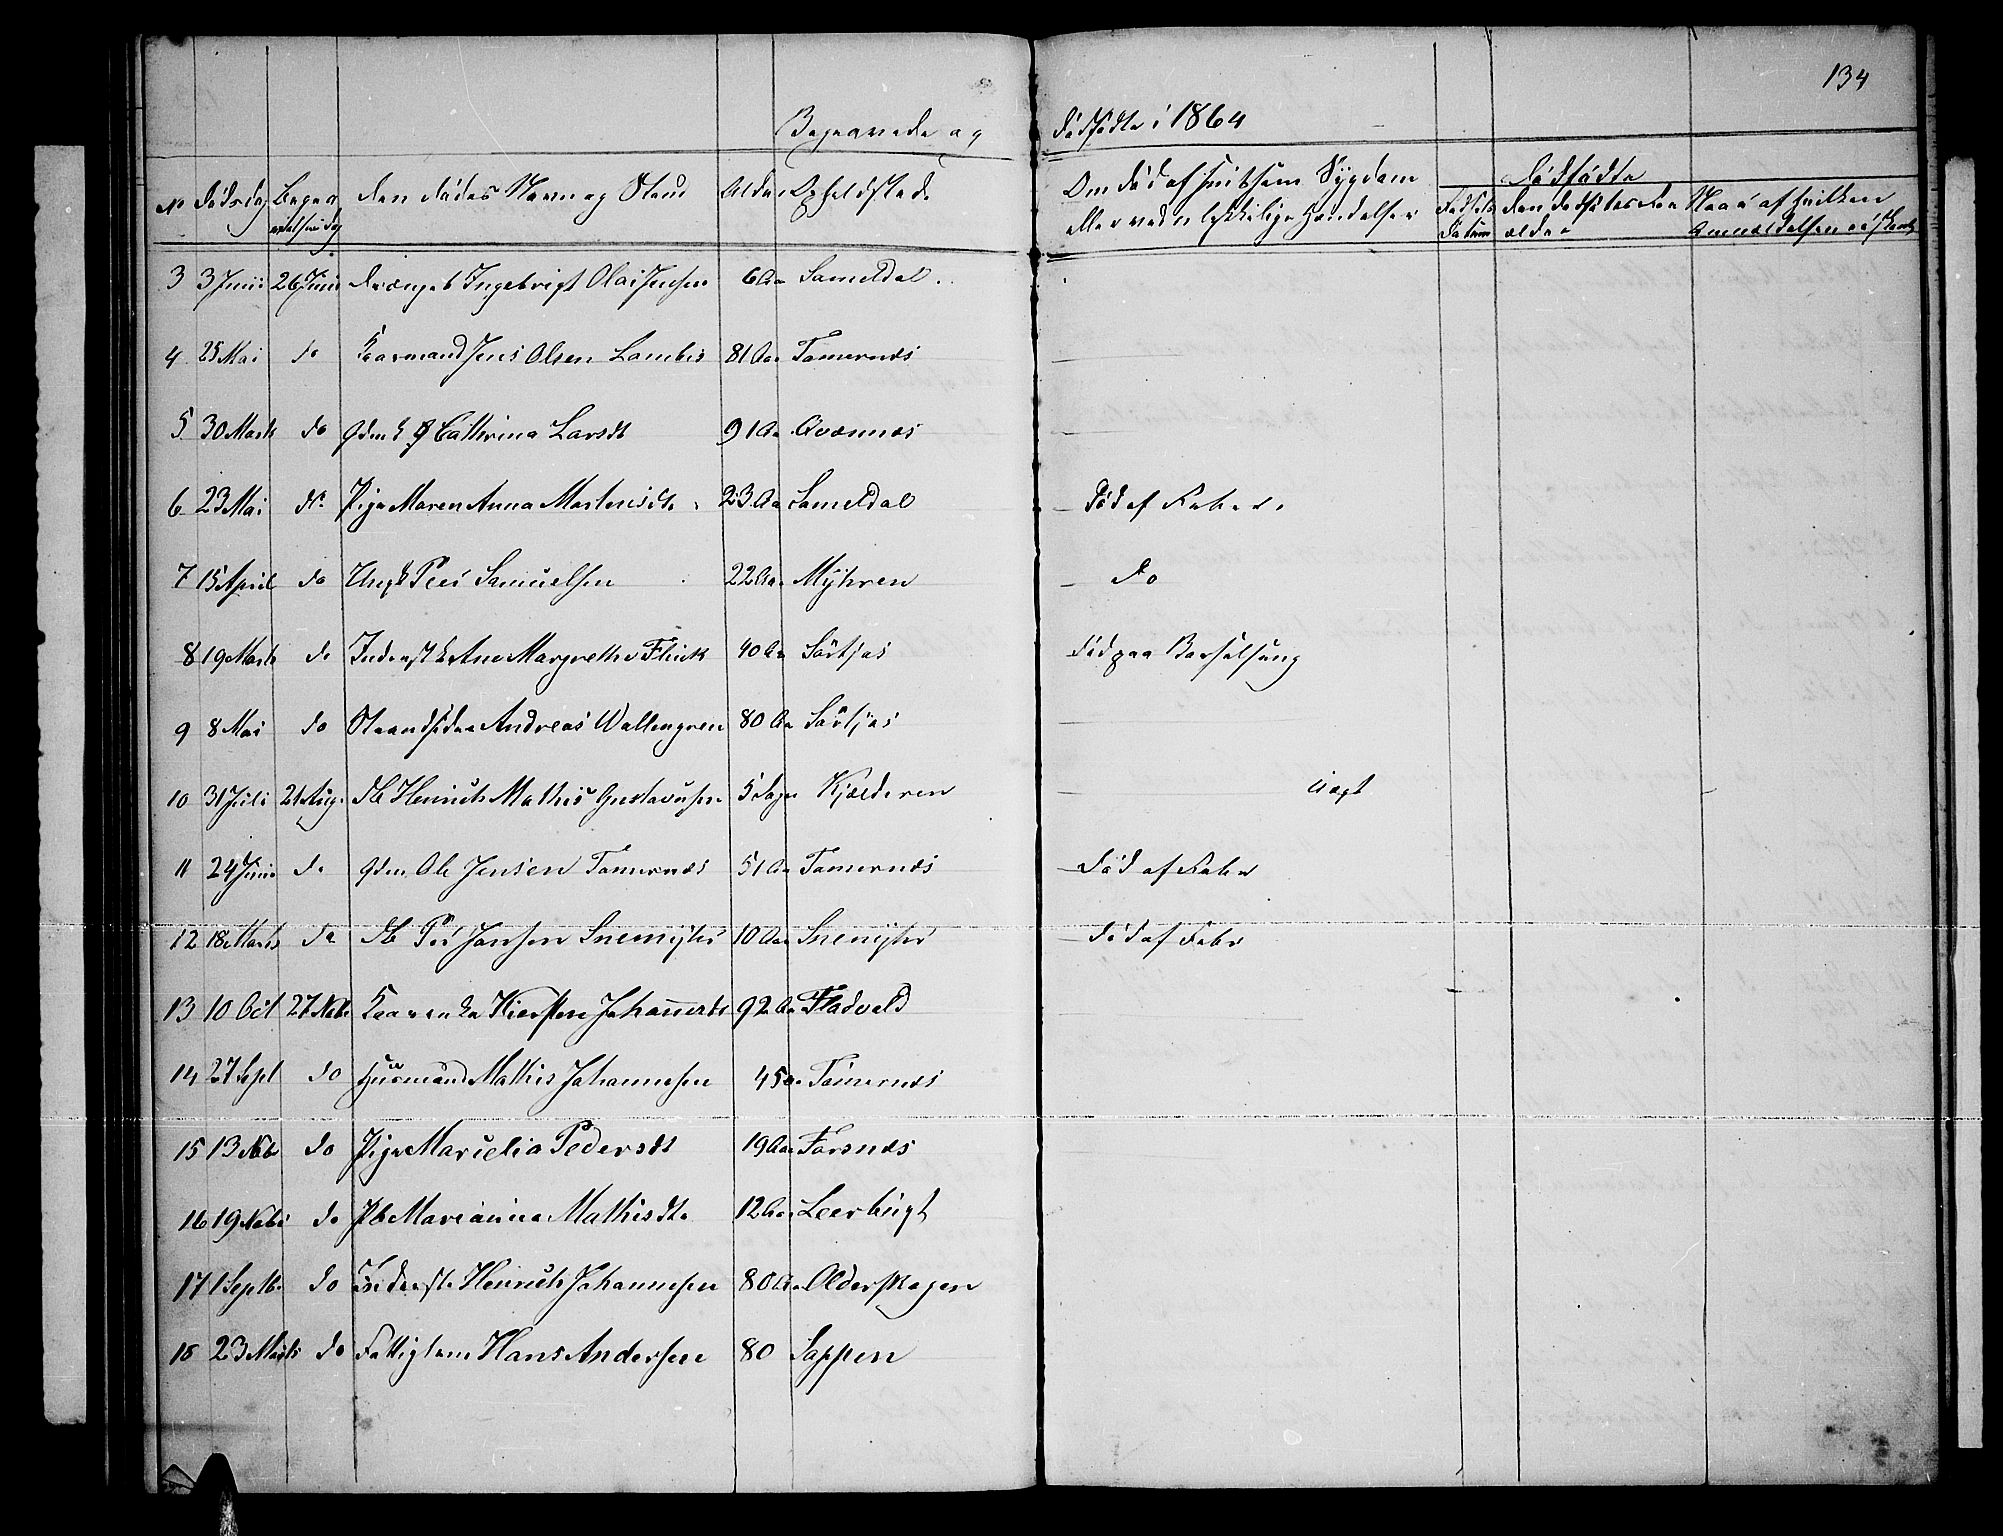 134
Begravede og dødfødte i 1864
No Dødsdag Begravelsesdag Den Dødes Navn og Stand Alder Opholdsted
Om død af hvilken Sygdom eller ved ulykkelige Hændelser
Dødfødte
Fødsels Datum Den dødfødtes Forældre Naar af hvilken Anmeldelsen er skeet
3 3 Juni 26 Juni Drengeb Ingebrigt Olai Jensen 6 Aar Sameldal
4 25 Mai do Kaarmand Jens Olsen Lambis 81 Aar Tamernæs
5 30 Marts do Gdm E Cathrina Larsdt 91 Aar Qvænnæs
6 23 Mai do Pige Maren Anna Mortensdt 23 Aar Sameldal Død af Feber
7 15 April do Ungk Peer Samuelsen 22 Aar Myhren do
8 19 Marts do Inderst K Ane Margrethe Flink 40 Aar Sørkjos Død paa Barselseng
9 8 Mai do Strandsidder Andreas Wallengren 80 Aar Sørkjos
10 31 Juli 21 Aug. db Henrich Mathis Gustavusen 5 Dage Kjelderen
11 24 Juni do Gdm Ole Jensen Tamernæs 51 Aar Tamernæs Død af Feber
12 18 Marts do db Per Jensen Snemyhr 10 Aar Snemyhr Død af Feber
13 10 Oct 27 Nobr Kaarenke Kiersten Johannesdt 92 Aar Fladvold
14 27 Sept do Huusmand Mathis Johannesen 45 Aar Tamernæs
15 13 Nobr do Pige Marielia Pedersdt 19 Aar Forsnæs
16 19 Nobr do Pb Marianna Mathisdt 12 Aar Leerbugt
17 1 Septbr do Inderste Henrich Johannesen 80 Aar Olderskogen
18 23 Marts do Fattiglem Hans Andersen 80 Sappen